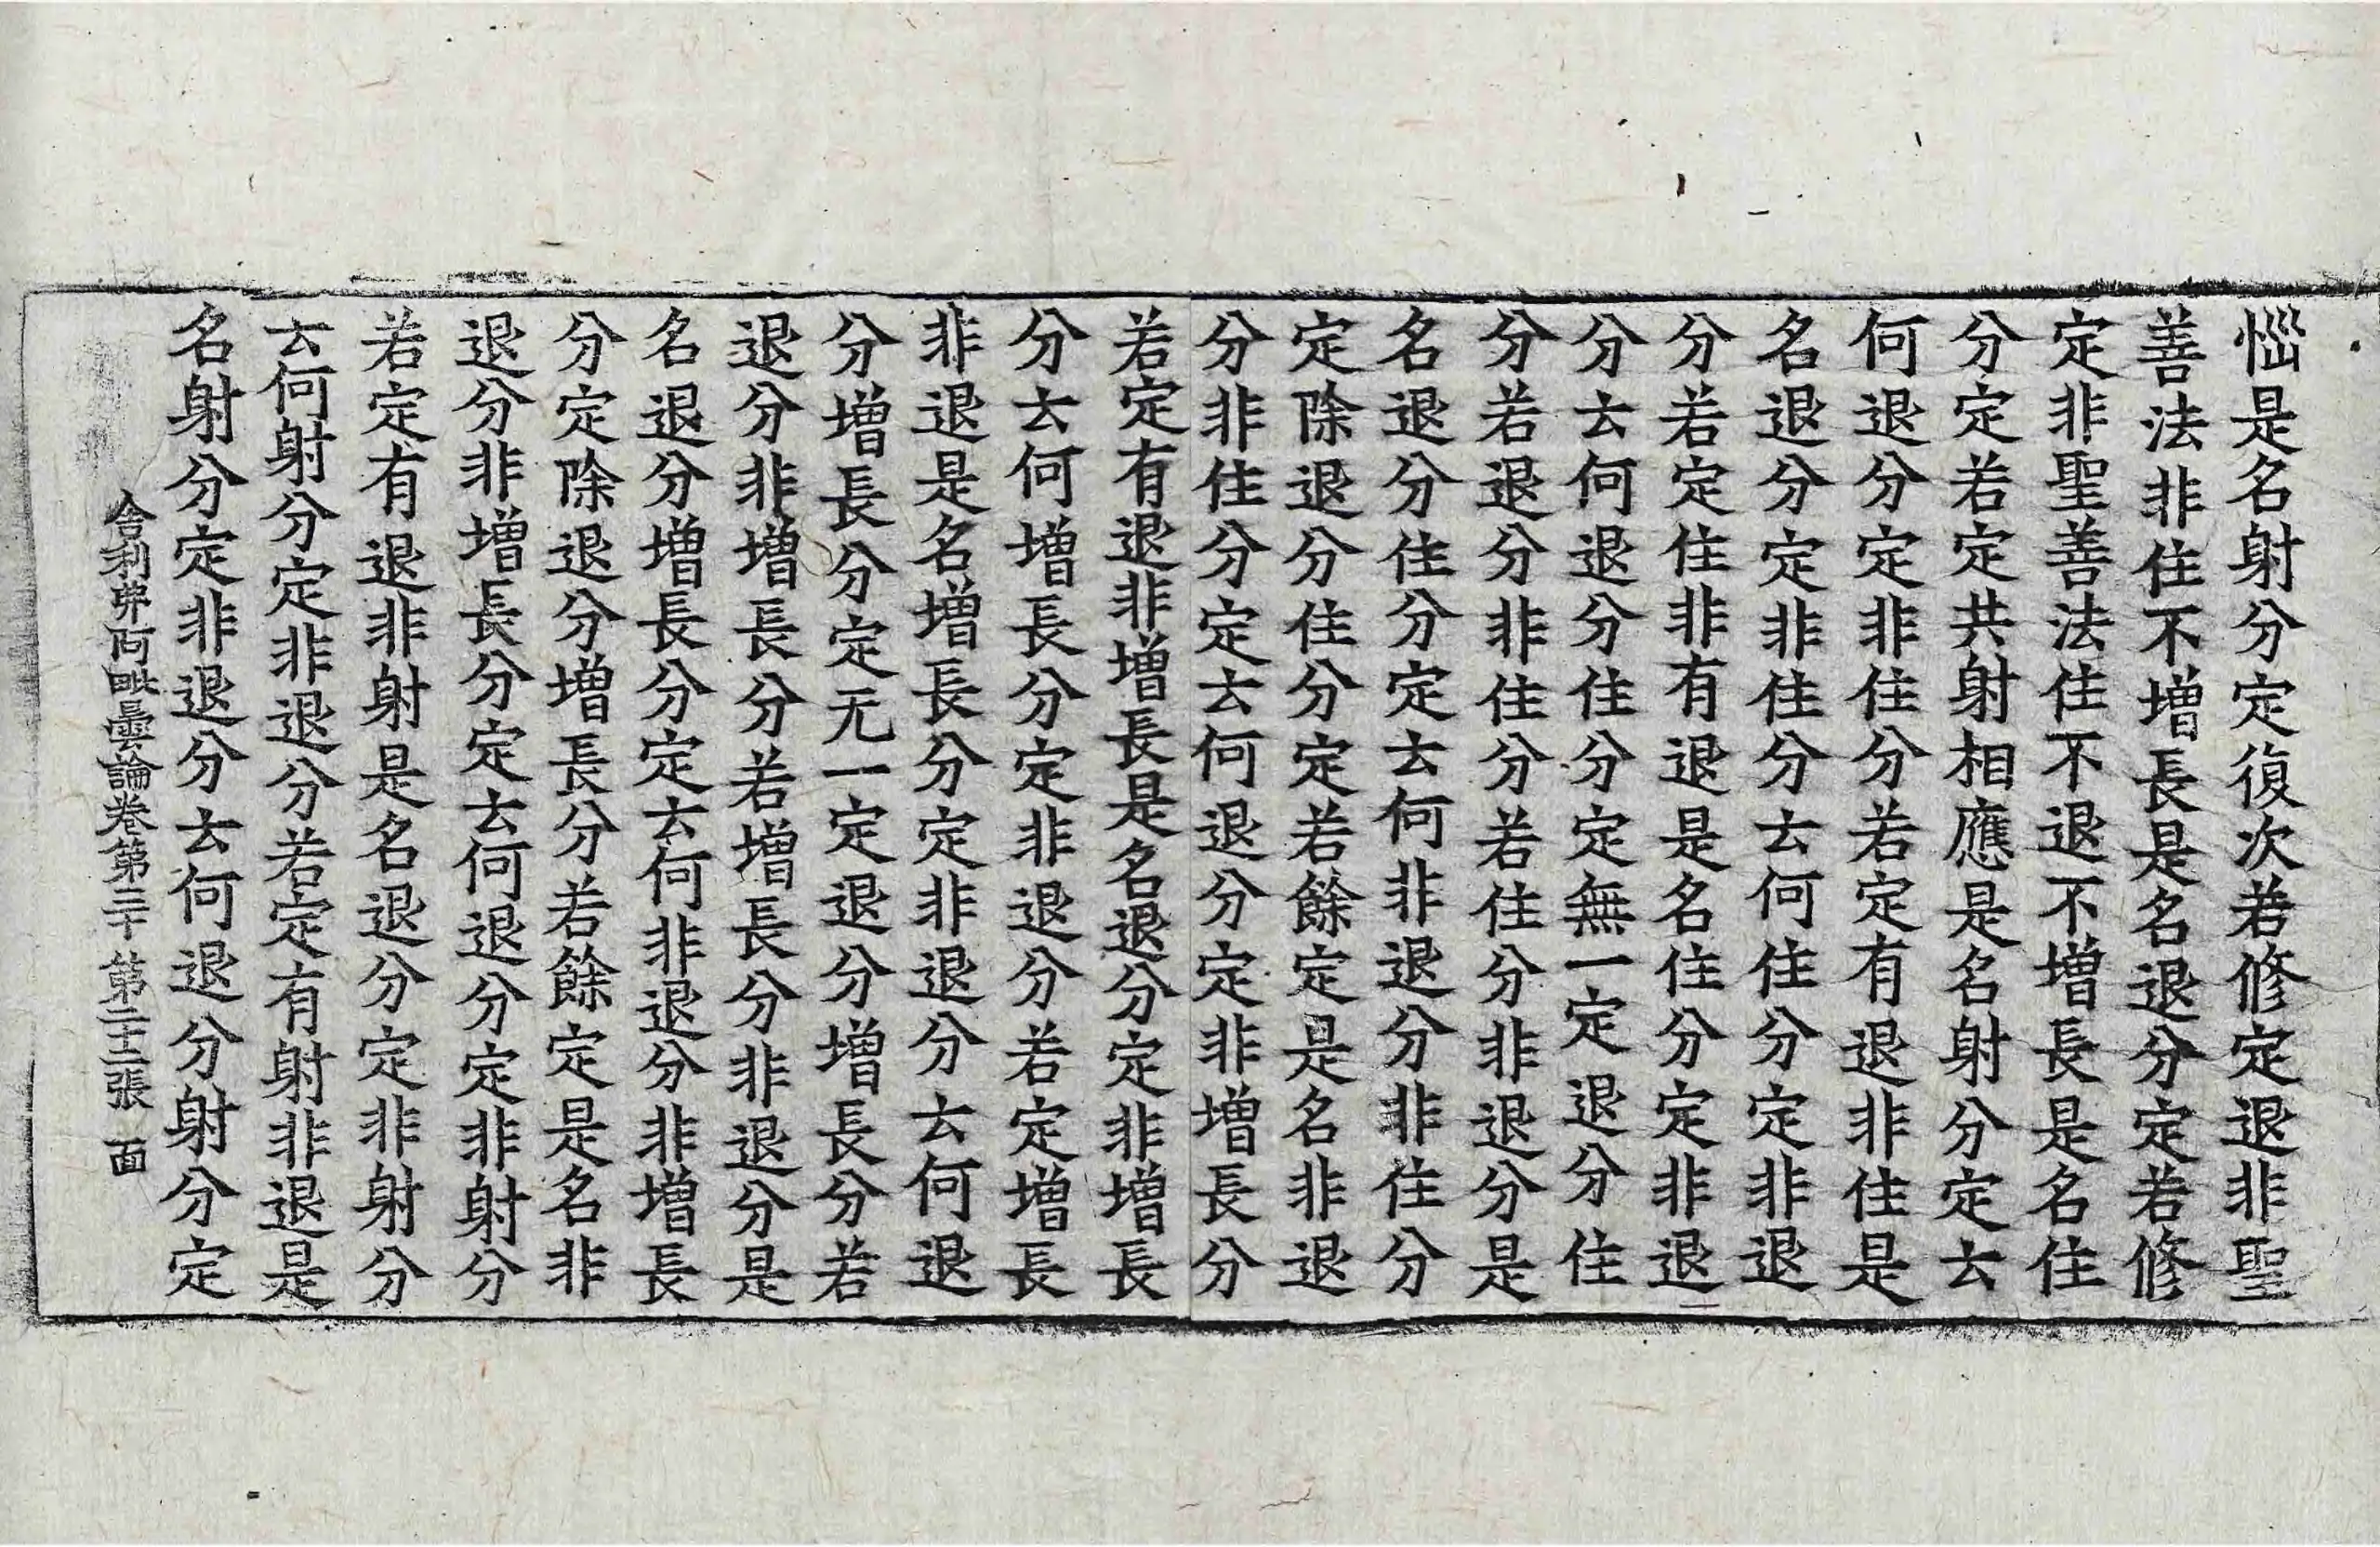 惱是名射分定復次若修定退非聖
善法非住不增長是名退分定若修
定非聖善法住不退不增長是名住
分定若定共射相應是名射分定云
何退分定非住分若定有退非住是
名退分定非住分云何住分定非退
分若定住非有退是名住分定非退
分云何退分住分定無一定退分住
分若退分非住分若住分非退分是
名退分住分定云何非退分非住分
定除退分住分定若餘定是名非退
分非住分定云何退分定非增長分
若定有退非增長是名退分定非增長
分云何增長分定非退分若定增長
非退是名增長分定非退分云何退
分增長分定无一定退分增長分若
退分非增長分若增長分非退分是
名退分增長分定云何非退分非增長
分定除退分增長分若餘定是名非
退分非增長分定云何退分定非射分
若定有退非射是名退分定非射分
云何射分定非退分若定有射非退是
名射分定非退分云何退分射分定
舍利弗阿毗曇論卷第三十 第二十二張 面